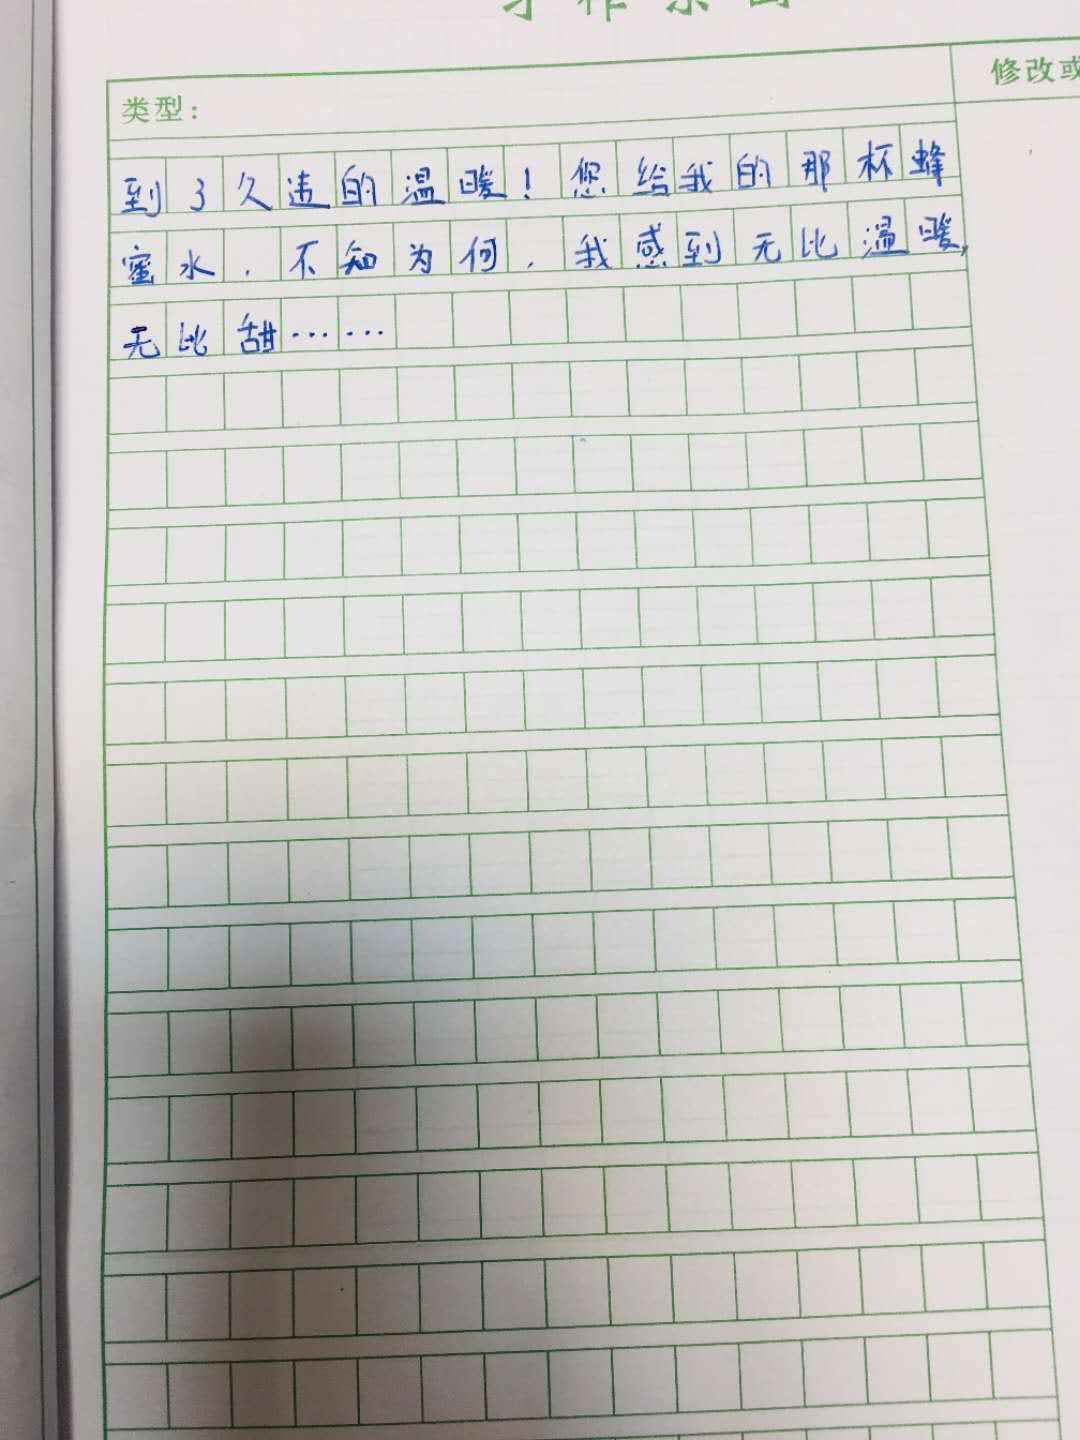 类型：
修改或
到了久违的温暖！您给我的那杯蜂
蜜水，不知为何，我感到无比温暖，
无比甜……